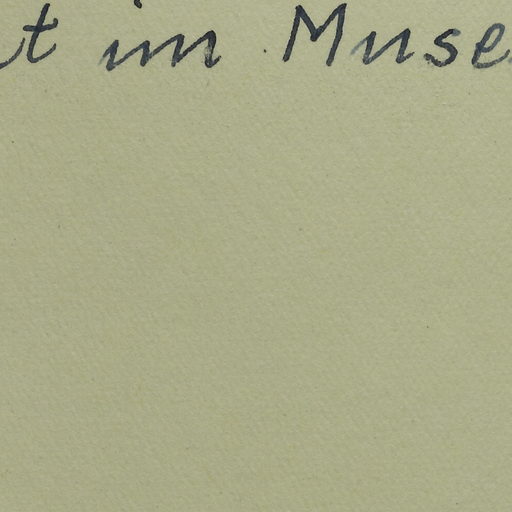 t im Muse